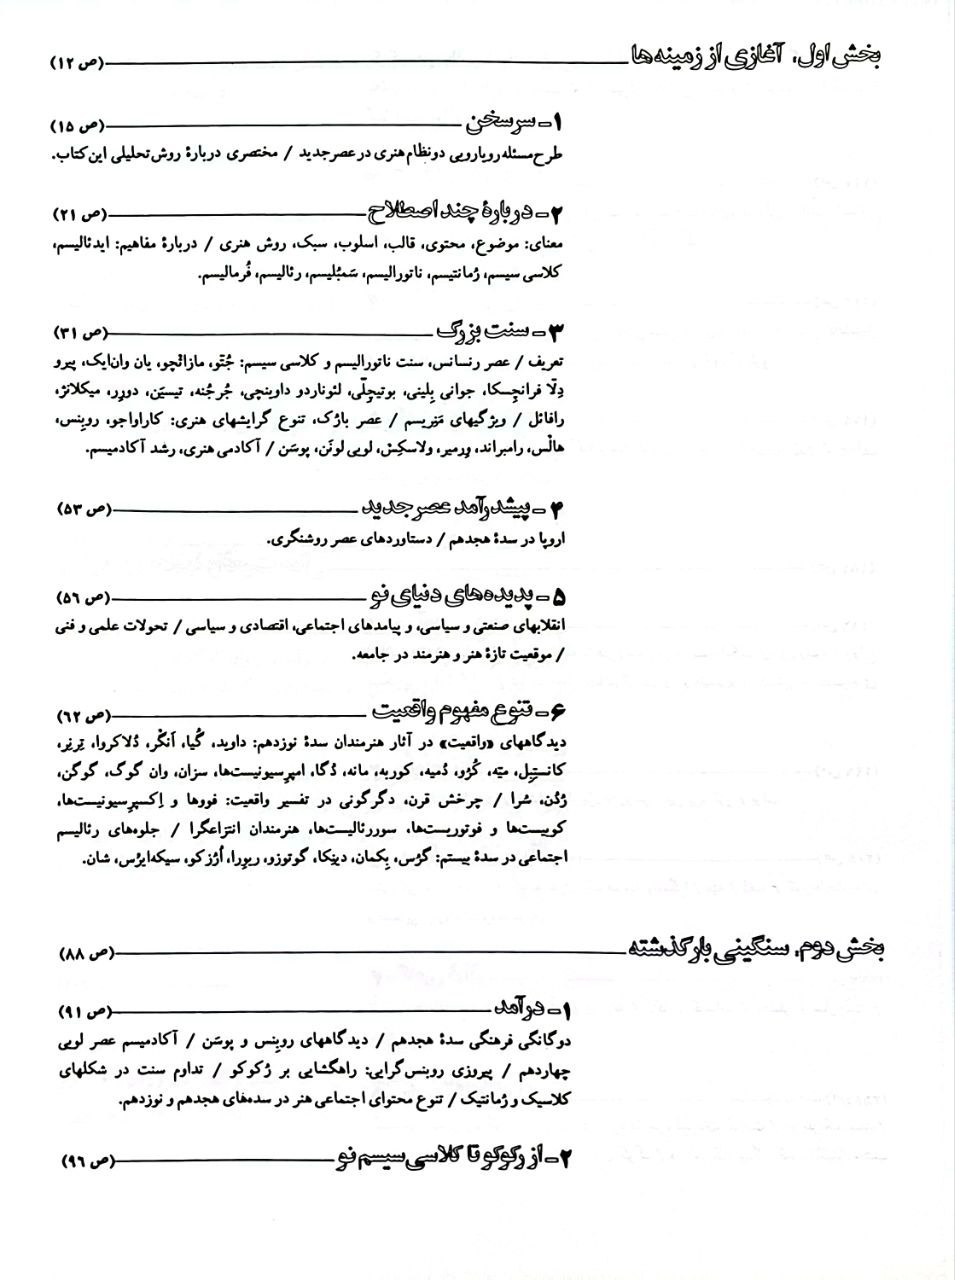 بخش اول. آغازی از زمینه‌ها (ص ۱۲)
۱ـ سرسخن (ص ۱۵)
طرح مسئله رویارویی دو نظام هنری در عصر جدید / مختصری دربارهٔ روش تحلیلی این کتاب.
۲ـ دربارهٔ چند اصطلاح (ص ۲۱)
معنای: موضوع، محتوی، قالب، اسلوب، سبک، روش هنری / دربارهٔ مفاهیم: ایدئالیسم،
کلاسی سیسم، رُمانتیسم، ناتورالیسم، سَمبُلیسم، رئالیسم، فُرمالیسم.
۳ـ سنت بزرگ (ص ۳۱)
تعریف / عصر رنسانس، سنت ناتورالیسم و کلاسی سیسم: جُتّو، مازاتْچو، یان وان‌ایک، پیرو
دِلّا فرانچِسکا، جوانی بِلینی، بوتیچِلّی، لئوناردو داوینچی، جُرجُنه، تیسیَن، دورِر، میکلانژ،
رافائل / ویژگیهای مَنِریسم / عصر باژک، تنوع گرایشهای هنری: کاراواجو، روبِنس،
هالْس، رامبراند، وِرمیر، ولاسکِش، لویی لونَن، پوسَن / آکادمی هنری، رشد آکادمیسم.
۴ـ پیشدرآمد عصر جدید (ص ۵۳)
اروپا در سدهٔ هجدهم / دستاوردهای عصر روشنگری.
۵ـ پدیده‌های دنیای نو (ص ۵۶)
انقلابهای صنعتی و سیاسی، و پیامدهای اجتماعی، اقتصادی و سیاسی / تحولات علمی و فنی
/ موقعیت تازهٔ هنر و هنرمند در جامعه.
۶ـ تنوع مفهوم واقعیت (ص ۶۲)
دیدگاههای «واقعیت» در آثار هنرمندان سدهٔ نوزدهم: داوید، گُیا، اَنگْر، دُلاکروا، تِرنِر،
کانستِبل، میّه، کُرُو، دُمیه، کوربه، مانه، دُگا، امپرسیونیست‌ها، سزان، وان گوگ، گوگن،
رُدَن، سُرا / چرخش قرن، دگرگونی در تفسیر واقعیت: فووها و اِکسپرسیونیست‌ها،
کوبیست‌ها و فوتوریست‌ها، سوررئالیست‌ها، هنرمندان انتزاعگرا / جلوه‌های رئالیسم
اجتماعی در سدهٔ بیستم: گرُس، بِکمان، دینِکا، گوتوزو، ریوِرا، اُرُزکو، سیکه‌ایرُس، شان.
بخش دوم. سنگینی بار گذشته (ص ۸۸)
۱ـ درآمد (ص ۹۱)
دوگانگی فرهنگی سدهٔ هجدهم / دیدگاههای روبِنس و پوسَن / آکادمیسم عصر لویی
چهاردهم / پیروزی روبنس‌گرایی: راهگشایی بر رُکوکو / تداوم سنت در شکلهای
کلاسیک و رُمانتیک / تنوع محتوای اجتماعی هنر در سده‌های هجدهم و نوزدهم.
۲ـ از رکوکو تا کلاسی سیسم نو (ص ۹۶)